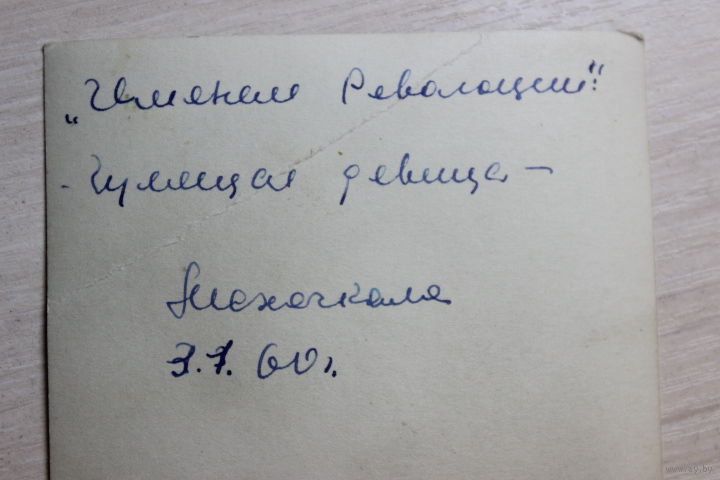 „Именем Революции".
- Гулящая девица -
Махачкала
3.7.60г.
www.ay.by